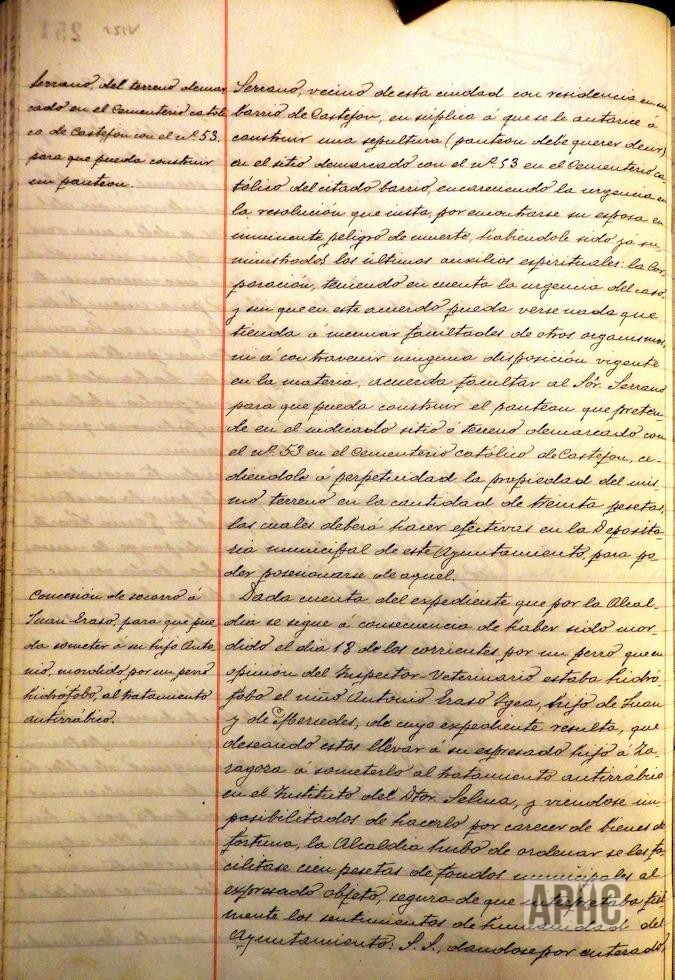 Serrano, del terreno demar
cado en el Cementerio católi
co de Castejón con el nº 53.
para que pueda construir
un panteon.
Serrano, vecino de esta ciudad con residencia en su
barrio de Castejon, en súplica á que se le autorice á
construir una sepultura (panteon debe querer decir)
en el sitio demarcado con el nº 53 en el Cementerio ca-
tólico del citado barrio, encareciendo la urgencia en
la resolución que insta, por encontrarse su esposa en
inminente peligro de muerte, habiendole sido ya su-
ministrados los últimos auxilios espirituales: la Cor
poración, teniendo en cuenta la urgencia del caso,
y sin que en este acuerdo pueda verse nada que
tienda á mermar facultades de otros organismos,
ni á contravenir ninguna disposición vigente
en la materia, acuerda facultar al Sór. Serrano
para que pueda construir el panteon que preten-
de en el indicado sitio ó terreno demarcado con
el nº 53 en el Cementerio católico de Castejon, ce-
diendole á perpetuidad la propiedad del mis
mo terreno en la cantidad de treinta pesetas,
las cuales deberá hacer efectivas en la Deposita-
ria municipal de este Ayuntamiento, para po-
der posesionarse de aquel.
Concesión de socorro á
Juan Eraso, para que pue
da someter á su hijo Anto
nio, mordido por un perro
hidrófobo, al tratamiento
antirrábico.
Dada cuenta del expediente que por la Alcal-
dia se sigue á consecuencia de haber sido mor-
dido el dia 18 de los corrientes por un perro que en
opinión del Inspector Veterinario estaba hidró
fobo el niño Antonio Eraso Ygea, hijo de Juan
y de Mercedes, de cuyo expediente resulta, que
deseando estos llevar á su expresado hijo á Za-
ragoza á someterlo al tratamiento antirrábico
en el Instituto del Dtor. Selma, y viendose im
posibilitados de hacerlo por carecer de bienes de
fortuna, la Alcaldia hubo de ordenar se les fa-
cilitase cien pesetas de fondos municipales al
expresado objeto, segura de que interpretaba fiel
mente los sentimientos de humanidad del
Ayuntamiento: S. S., dandose por enterado,
APHC